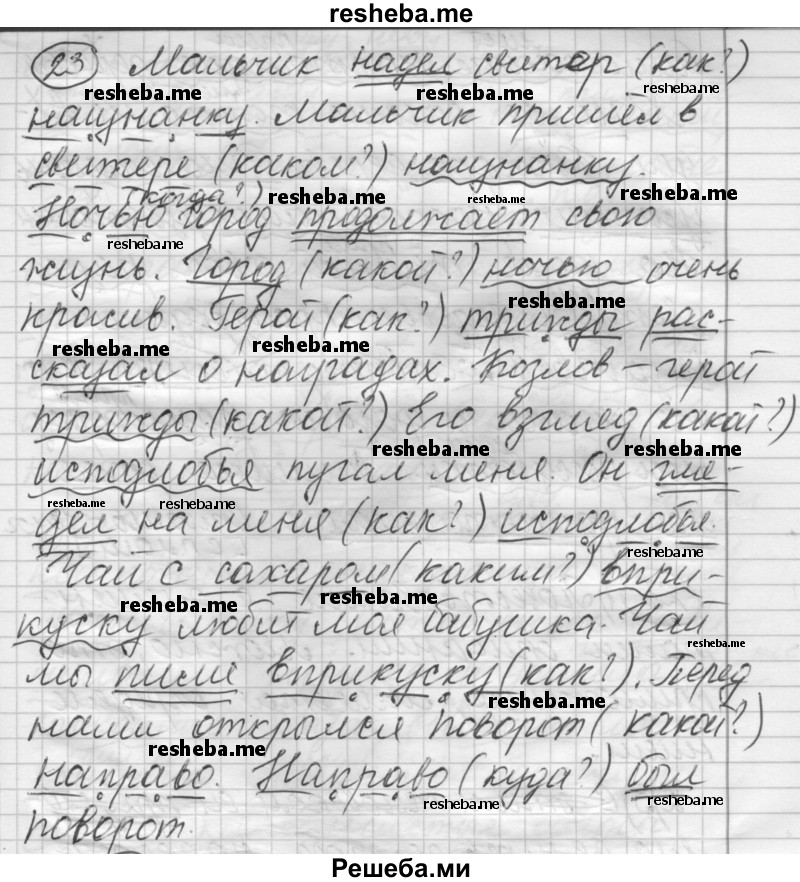 resheba.me
23 Мальчик надел свитер (как?)
resheba.me resheba.me resheba.me
наизнанку. Мальчик пришёл в
свитере (каком?) наизнанку.
(когда?) resheba.me resheba.me resheba.me
Ночью город продолжает свою
resheba.me
жизнь. Город (какой?) ночью очень
resheba.me
красив. Герой (как?) трижды рас-
resheba.me resheba.me
сказал о наградах. Козлов – герой
трижды (какой?) Его взгляд (какой?)
resheba.me resheba.me
исподлобья пугал меня. Он гля-
resheba.me resheba.me
дел на меня (как?) исподлобья.
resheba.me
Чай с сахаром (каким?) впри-
resheba.me resheba.me
куску любит моя бабушка. Чай
resheba.me
мы пили вприкуску (как?). Перед
resheba.me
нами открылся поворот (какой?)
resheba.me
направо. Направо (куда?) был
resheba.me resheba.me
поворот.
Решеба.ми